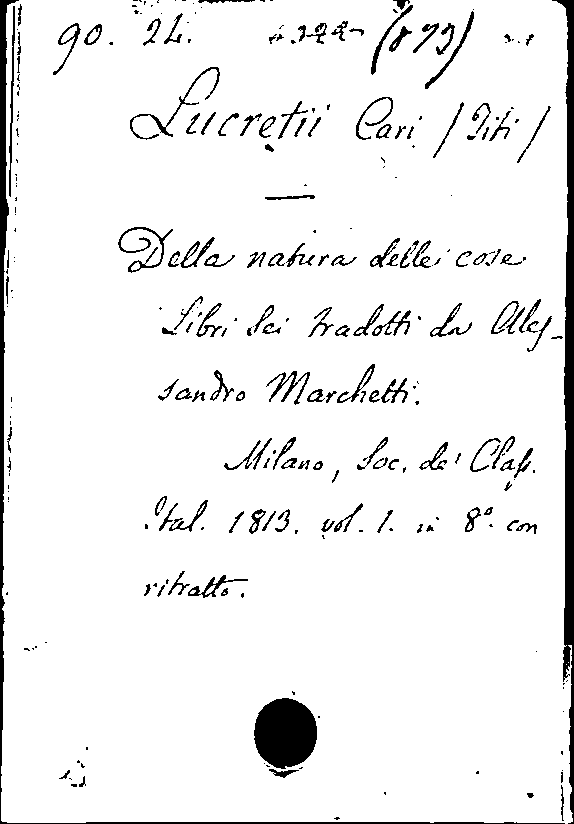 90. 24. (873)
Lucretii Cari / Titi /
—
Della natura delle cose
Libri sei tradotti da Ales-
sandro Marchetti.
Milano, Soc. de' Class.
Ital. 1813. vol. 1. in 8º. con
ritratto.